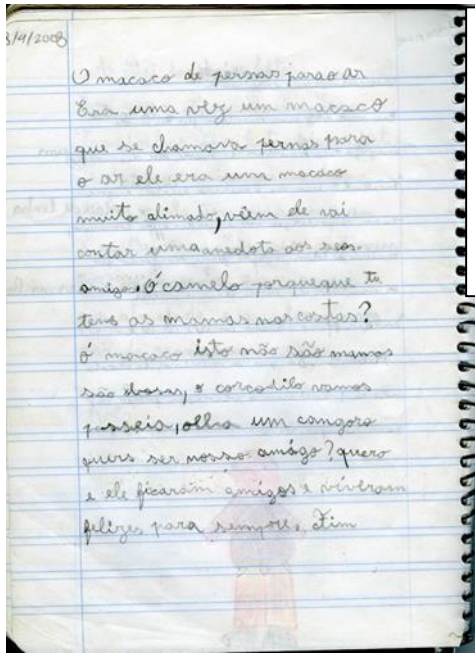 3/4/2008
O macaco de pernas parao ar
Era uma vez um macaco
que se chamava pernas para
o ar ele era um macaco
muito alimado, vèem de vai
contar umaanedota aos seos
amigos. ó camelo porqueque tu
tens as mamas nas costas?
ó macaco isto não são mamas
são bosas, o corcodilo vamos
passeia, olha um cangoro
quers ser nosso amágo? quero
e ele ficaram amigos e viveram
felizes para sempre. Fim